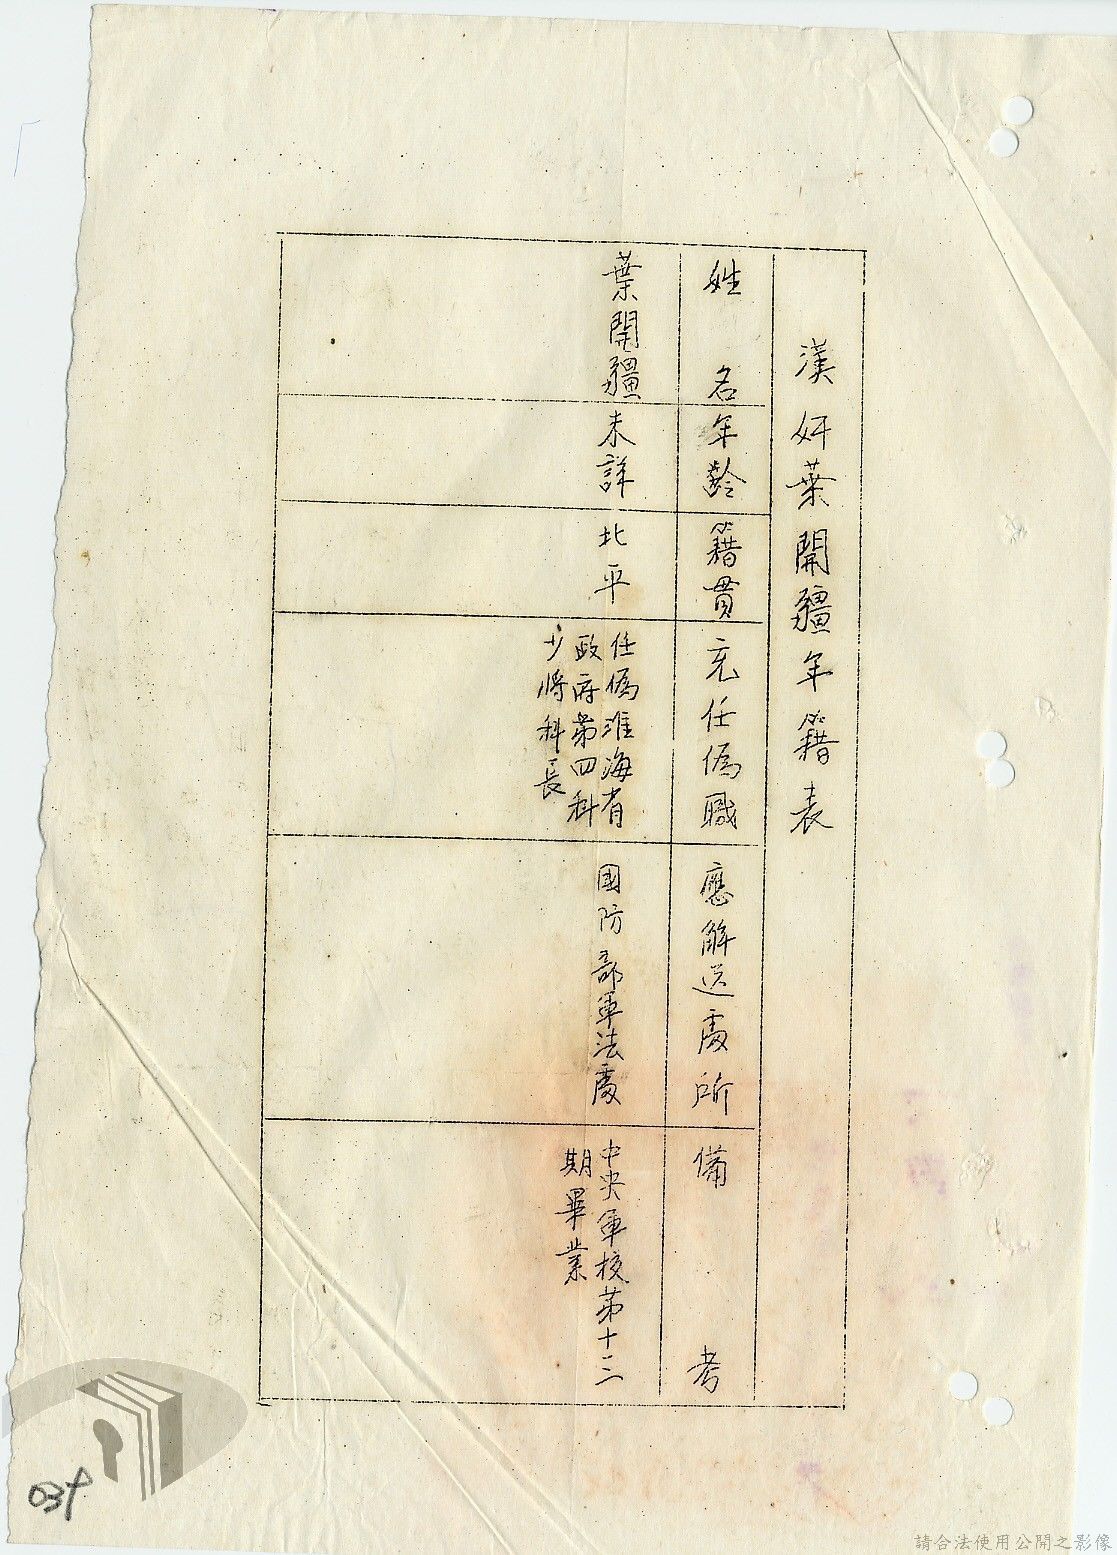 漢奸葉開疆年籍表
姓名
年齡
籍貫
充任偽職
應解送處所
備考
葉開疆
未詳
北平
任偽淮海省
政府第四科
少將科長
國防部軍法處
中央軍校第十三
期畢業
請合法使用公開之影像